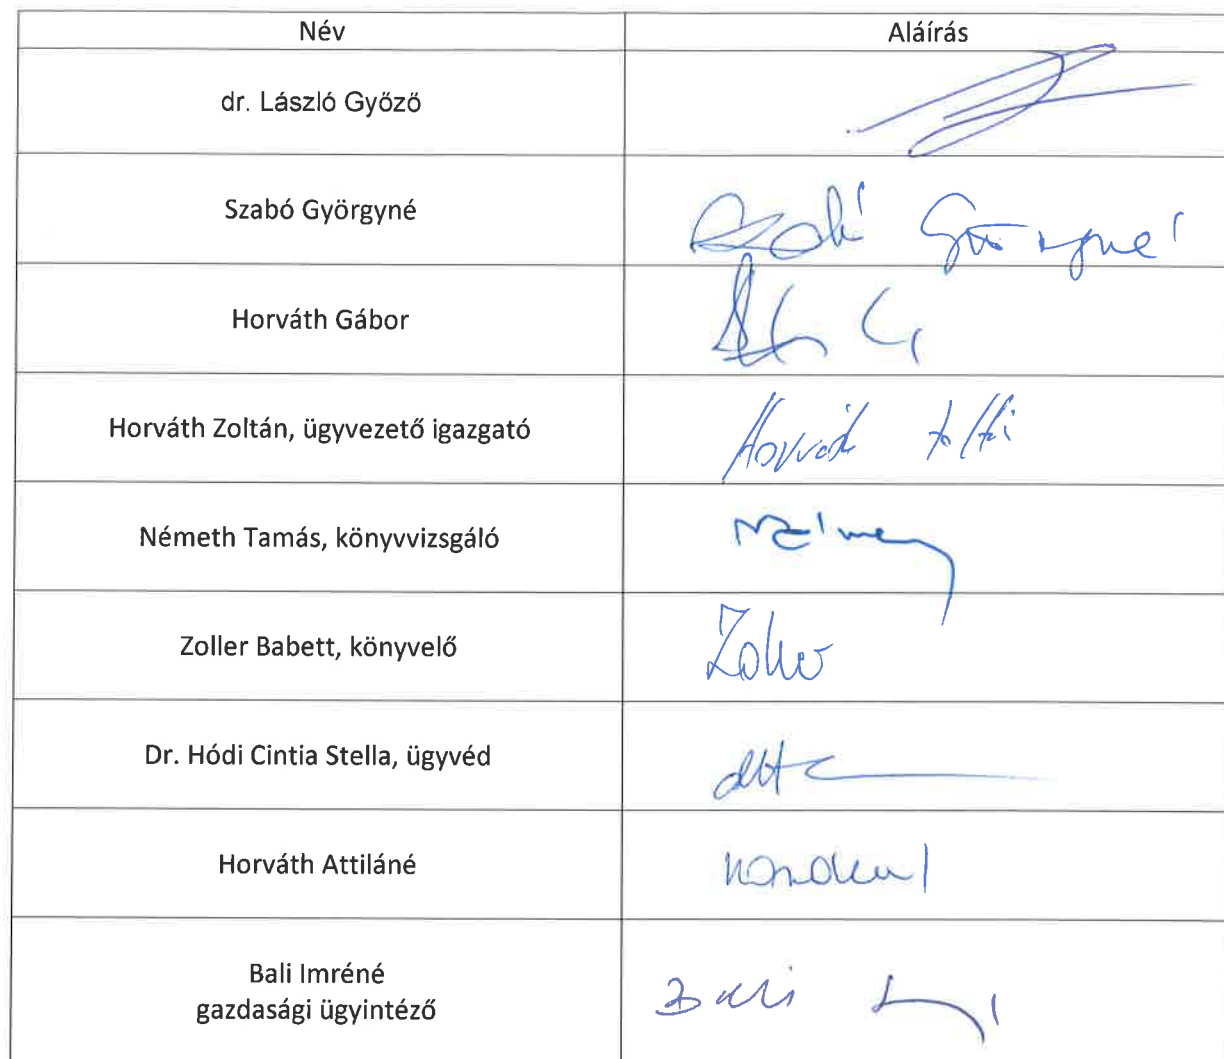 Név Aláírás
dr. László Győző
Szabó Györgyné Szabó Györgyné
Horváth Gábor
Horváth Zoltán, ügyvezető igazgató Horváth Zoltán
Németh Tamás, könyvvizsgáló
Zoller Babett, könyvelő Zoller
Dr. Hódi Cintia Stella, ügyvéd
Horváth Attiláné
Bali Imréné
gazdasági ügyintéző Bali